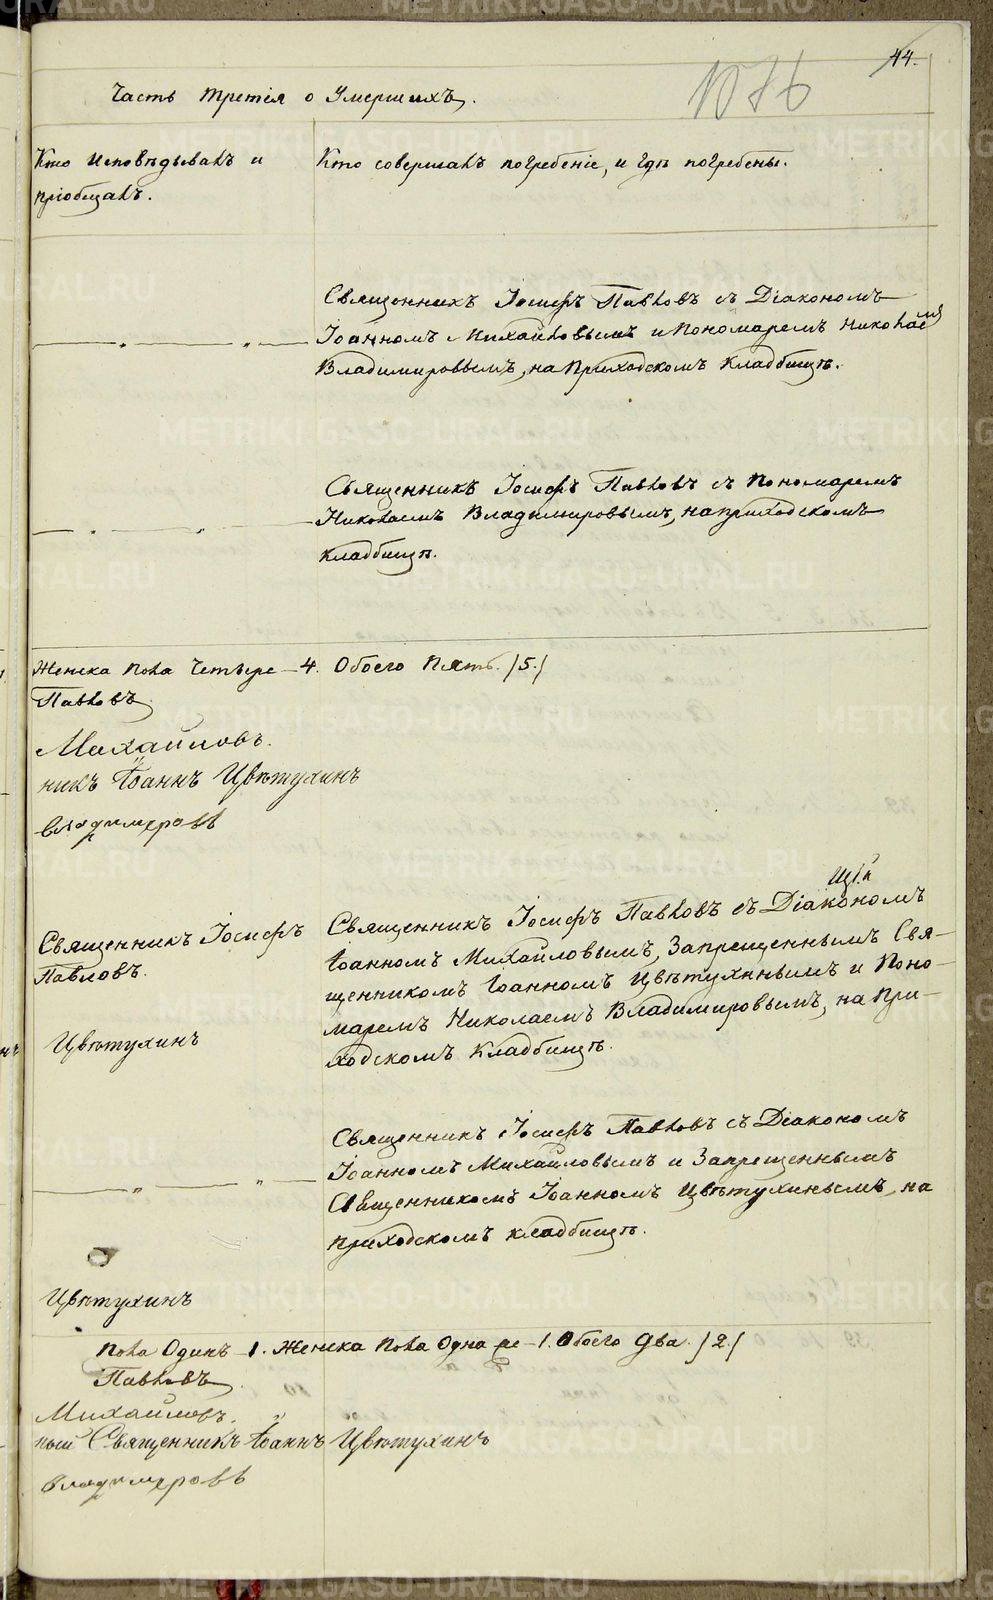 44.
1076
Часть третія о Умершихъ.
Кто исповѣдывалъ и
пріобщалъ.
Кто совершалъ погребеніе, и гдѣ погребены.
Священникъ Іосифъ Павловъ съ Діакономъ
— „ — „ — Іоанномъ Михайловымъ и Пономаремъ Николаемъ
Владимировымъ, на Приходскомъ Кладбищѣ.
Священникъ Іосифъ Павловъ съ Пономаремъ
— „ — „ — Николаемъ Владимировымъ, на приходскомъ
кладбищѣ.
Женска пола Четыре — 4. Обоего Пять. /5./
Павловъ
Михайловъ.
никъ Іоаннъ Цвѣтухинъ
Владимеровъ
Священникъ Іосифъ
Павловъ.
Цвѣтухинъ
Священникъ Іосифъ Павловъ съ Діакономъ
Іоанномъ Михайловымъ, Запрещеннымъ Свя-
щенникомъ Іоанномъ Цвѣтухинымъ и Поно-
маремъ Николаемъ Владимировымъ, на При-
ходскомъ Кладбищѣ.
Священникъ Іосифъ Павловъ съ Діакономъ
Іоанномъ Михайловымъ и Запрещеннымъ
— „ — „ — Священникомъ Іоанномъ Цвѣтухинымъ, на
приходскомъ кладбищѣ.
Цвѣтухинъ
пола Одинъ — 1. Женска пола Одна — 1. Обоего Два. /2./
Павловъ
Михайловъ.
ный Священникъ Іоаннъ Цвѣтухинъ
Владимеровъ
METRIKI.GASO-URAL.RU